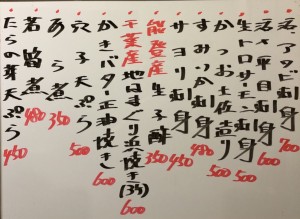 活〆アワビ刺身 700
活〆平目刺身 600
生トロサーモン刺身 500
かつお土佐造り 500
すみいか刺身 480
サヨリ刺身 450
能登産 生子酢 350
千葉産 地はまぐり浜焼き(3ケ) 600
かきバター正油焼き 600
穴子天ぷら 500
あら煮 350
若筍煮 480
たらの芽天ぷら 450